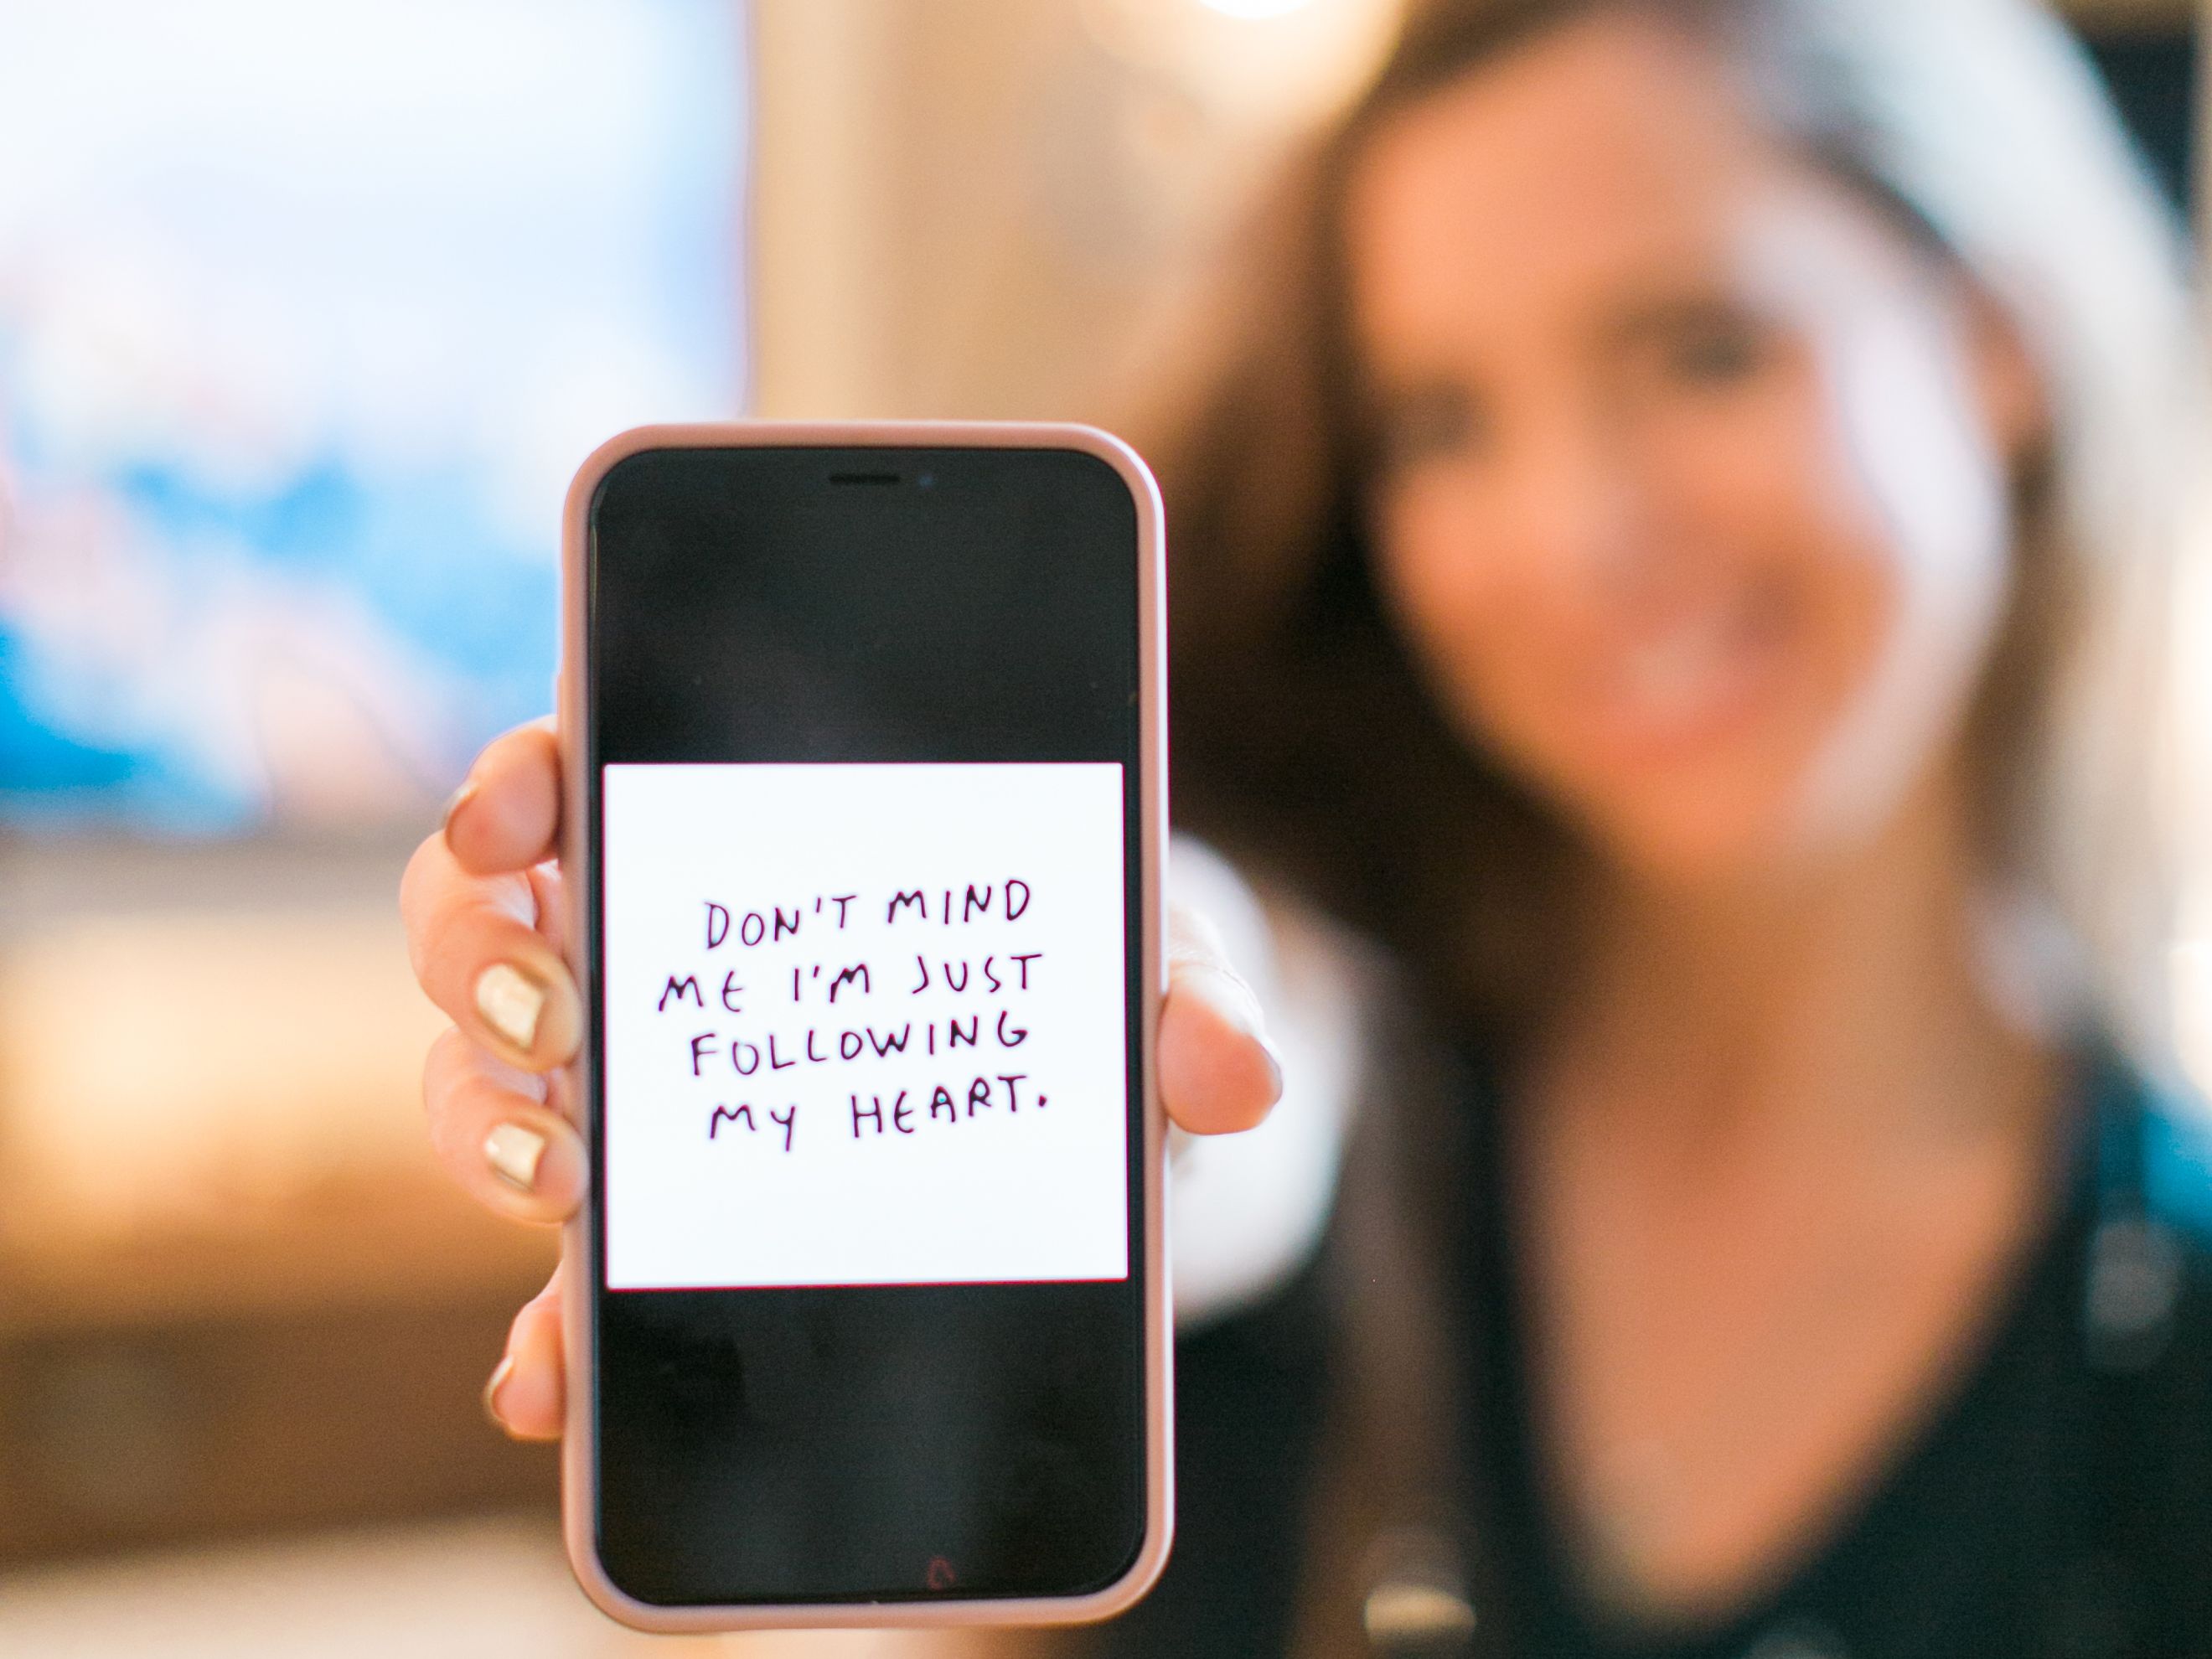 DON'T MIND
ME I'M JUST
FOLLOWING
MY HEART.